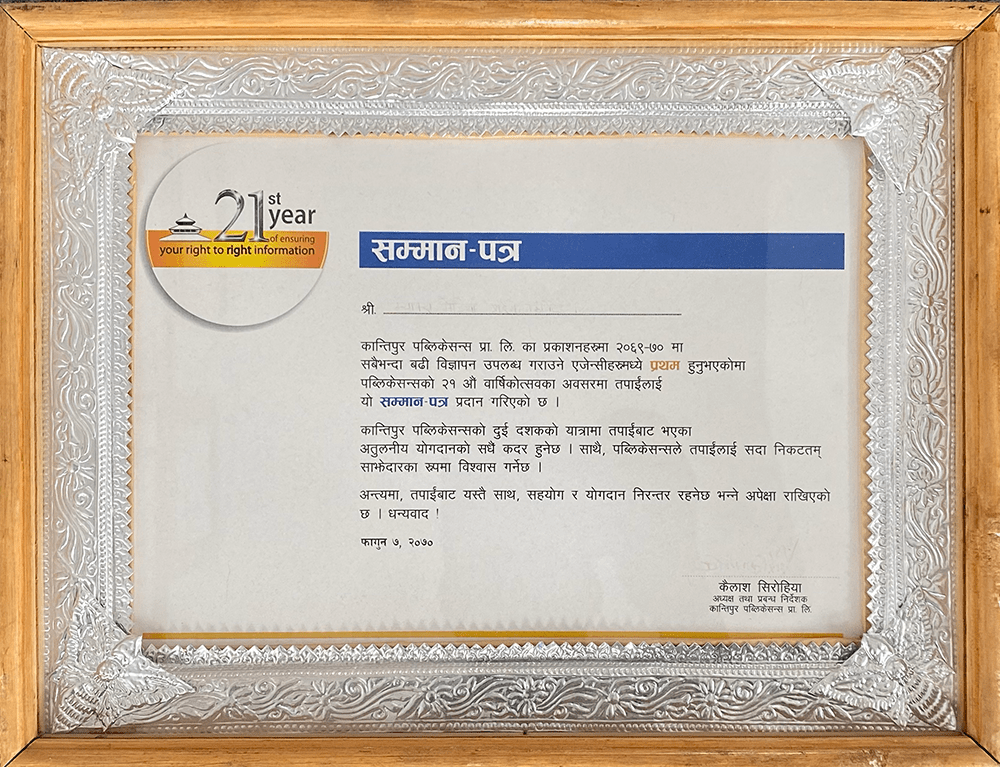 21st
year
of ensuring
your right to right information
सम्मान-पत्र
श्री.
कान्तिपुर पब्लिकेसन्स प्रा. लि. का प्रकाशनहरुमा २०६९-७० मा
सबैभन्दा बढी विज्ञापन उपलब्ध गराउने एजेन्सीहरुमध्ये प्रथम हुनुभएकोमा
पब्लिकेसन्सको २१ औं वार्षिकोत्सवका अवसरमा तपाईंलाई
यो सम्मान-पत्र प्रदान गरिएको छ ।
कान्तिपुर पब्लिकेसन्सको दुई दशकको यात्रामा तपाईंबाट भएका
अतुलनीय योगदानको सधैं कदर हुनेछ । साथै, पब्लिकेसन्सले तपाईंलाई सदा निकटतम्
साझेदारका रुपमा विश्वास गर्नेछ ।
अन्त्यमा, तपाईंबाट यस्तै साथ, सहयोग र योगदान निरन्तर रहनेछ भन्ने अपेक्षा राखिएको
छ । धन्यवाद !
फागुन ७, २०७०
कैलाश सिरोहिया
अध्यक्ष तथा प्रबन्ध निर्देशक
कान्तिपुर पब्लिकेसन्स प्रा. लि.